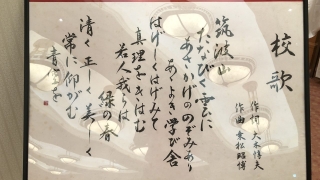 校歌
作詞 大木惇夫
作曲 乗松昭博
筑波山
たなびく雲に
あさかげののぞみあり
あゝよき学び舎
はげしくはげみて
真理をきはむ
若人我らは
緑の春
清く正しく美しく
常に仰がむ
青空を